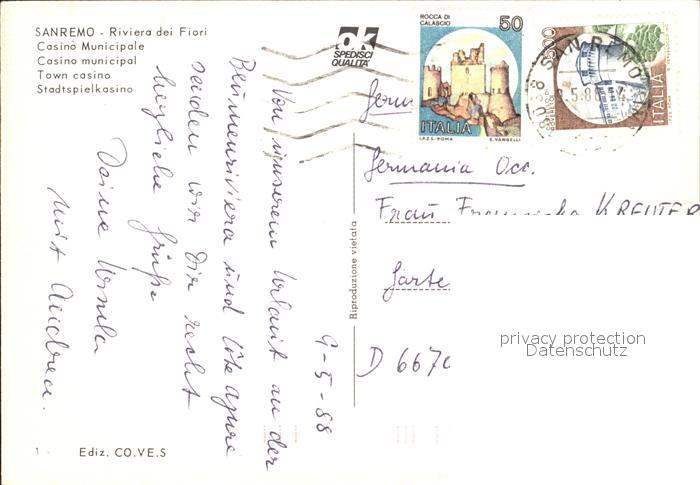 SANREMO - Riviera dei Fiori
Casinò Municipale
Casino municipal
Town casino
Stadtspielkasino
ok
SPEDISCI
QUALITA'
ROCCA DI
CALASCIO
50
ITALIA
I.P.Z.S.-ROMA E. VANGELLI
ITALIA
9-5-88
Von unserem Urlaub an der
Blumenriviera und Côte Azure
senden wir Dir recht
herzliche Grüße
Deine Ursula
mit Andrea.
Germania Occ.
Frau Franziska KREUTER
Garte
D 667
Riproduzione vietata
privacy protection
Datenschutz
1 - Ediz. CO.VE.S